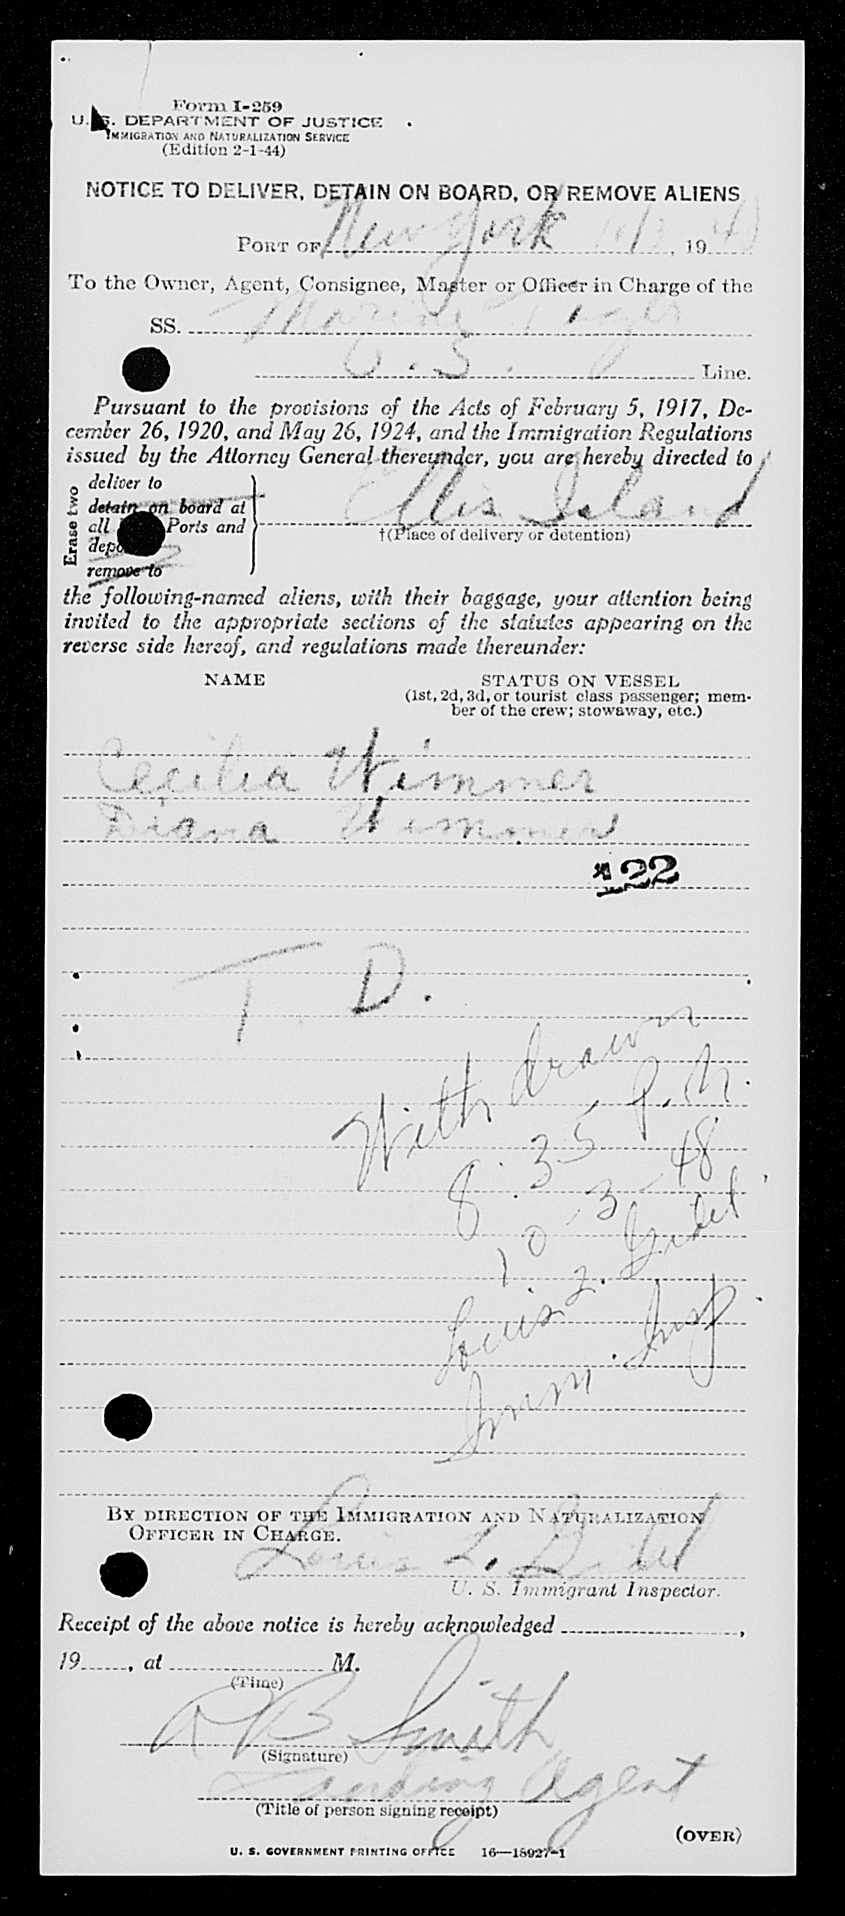 Form I-259
U. S. DEPARTMENT OF JUSTICE
IMMIGRATION AND NATURALIZATION SERVICE
(Edition 2-1-44)
NOTICE TO DELIVER, DETAIN ON BOARD, OR REMOVE ALIENS
PORT OF New York , 19
To the Owner, Agent, Consignee, Master or Officer in Charge of the
SS. Marine
U. S. Line.
Pursuant to the provisions of the Acts of February 5, 1917, De-
cember 26, 1920, and May 26, 1924, and the Immigration Regulations
issued by the Attorney General thereunder, you are hereby directed to
Erase two
deliver to
detain on board at
all Ports and
remove to
Ellis Island
†(Place of delivery or detention)
the following-named aliens, with their baggage, your attention being
invited to the appropriate sections of the statutes appearing on the
reverse side hereof, and regulations made thereunder:
NAME STATUS ON VESSEL
(1st, 2d, 3d, or tourist class passenger; mem-
ber of the crew; stowaway, etc.)
Cecilia Wimmer
Diana Wimmer
122
T. D.
Withdrawn
8:35 P.M.
10-3-48
Louis L.
Imm. Insp.
BY DIRECTION OF THE IMMIGRATION AND NATURALIZATION
OFFICER IN CHARGE.
Louis L.
U. S. Immigrant Inspector.
Receipt of the above notice is hereby acknowledged ,
19 , at M.
(Time)
B Smith
(Signature)
Landing Agent
(Title of person signing receipt)
(OVER)
U. S. GOVERNMENT PRINTING OFFICE 16—18927-1